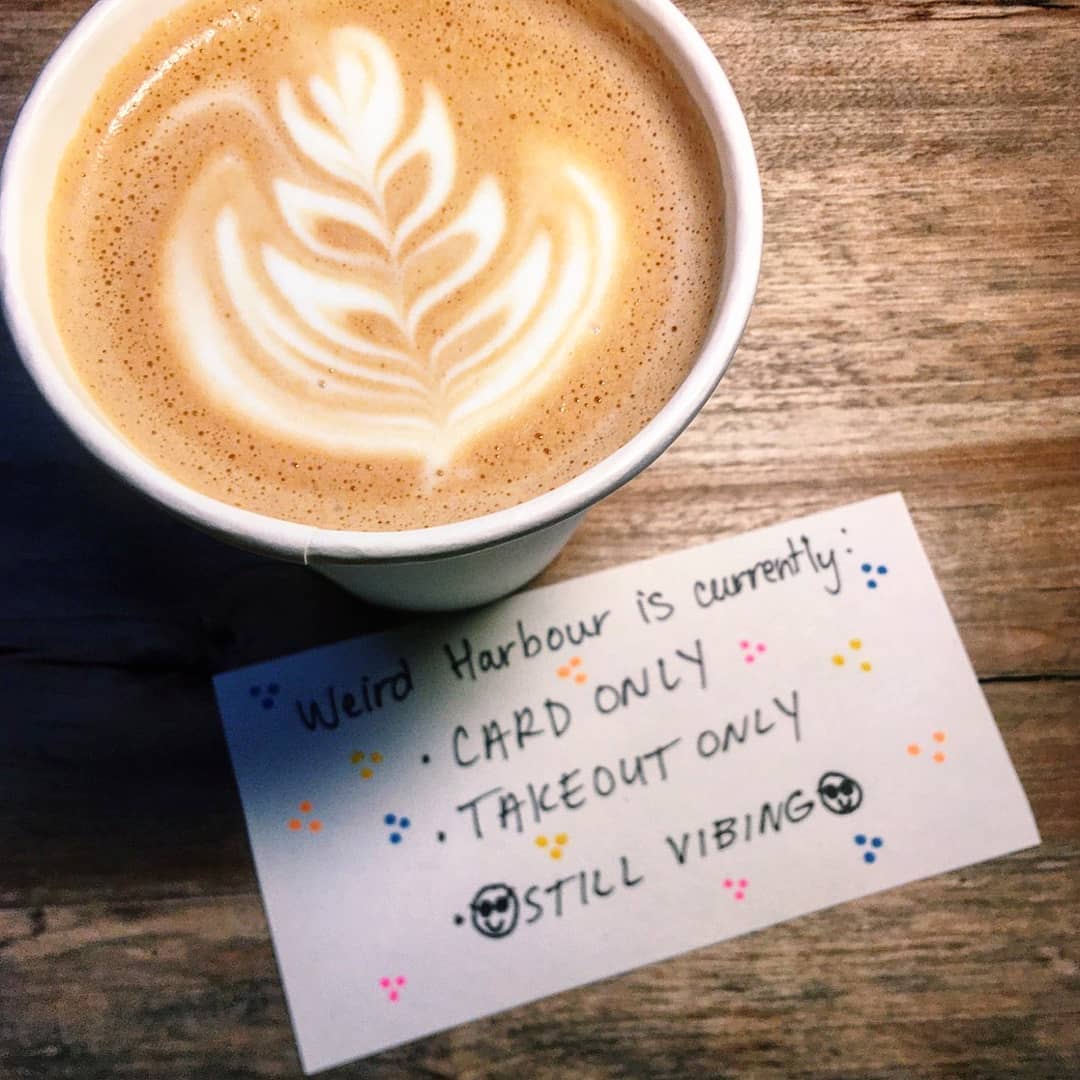 Weird Harbour is currently:
· CARD ONLY
· TAKEOUT ONLY
· 😎STILL VIBING😎